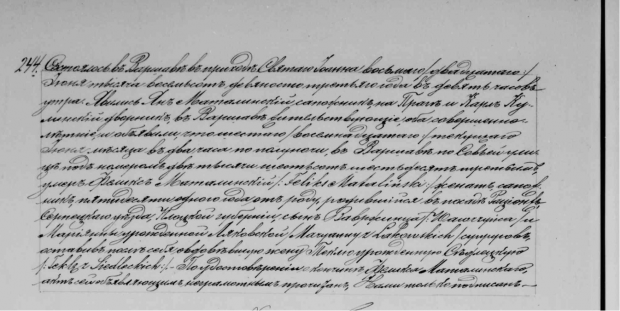 244. Состоялось въ Варшавѣ въ приходѣ Святаго Іоанна восьмаго /двадцатаго/
Іюня тысяча восемьсотъ девяносто третьяго года въ девять часовъ
утра. Явились Янъ Маталинскій сапожникъ, на Прагѣ и Карлъ
дворникъ, въ Варшавѣ жительствующіе, оба совершенно-
лѣтніе, и объявили, что шестаго /восемнадцатаго/ текущаго
Іюня мѣсяца въ два часа по полуночи въ Варшавѣ по Совьей ули-
цѣ подъ номеромъ двѣ тысячи шестьсотъ шестьдесятъ третьимъ,
умеръ Феликсъ Маталинскій /Feliks Mataliński/ женатъ, сапож-
никъ, пятидесяти одного года отъ роду, родившійся въ посадѣ
Серпецкаго уѣзда, Плоцкой губерніи, сынъ
Маріанны, урожденной Ляковской, /супруговъ,
оставивъ послѣ себя овдовѣвшую жену Теклю урожденную Сѣдлецкую
/Teklę z Siedleckich/. По удостовѣреніи о кончинѣ Феликса Маталинскаго,
актъ сей объявляющимъ неграмотнымъ прочитанъ, Нами только подписанъ